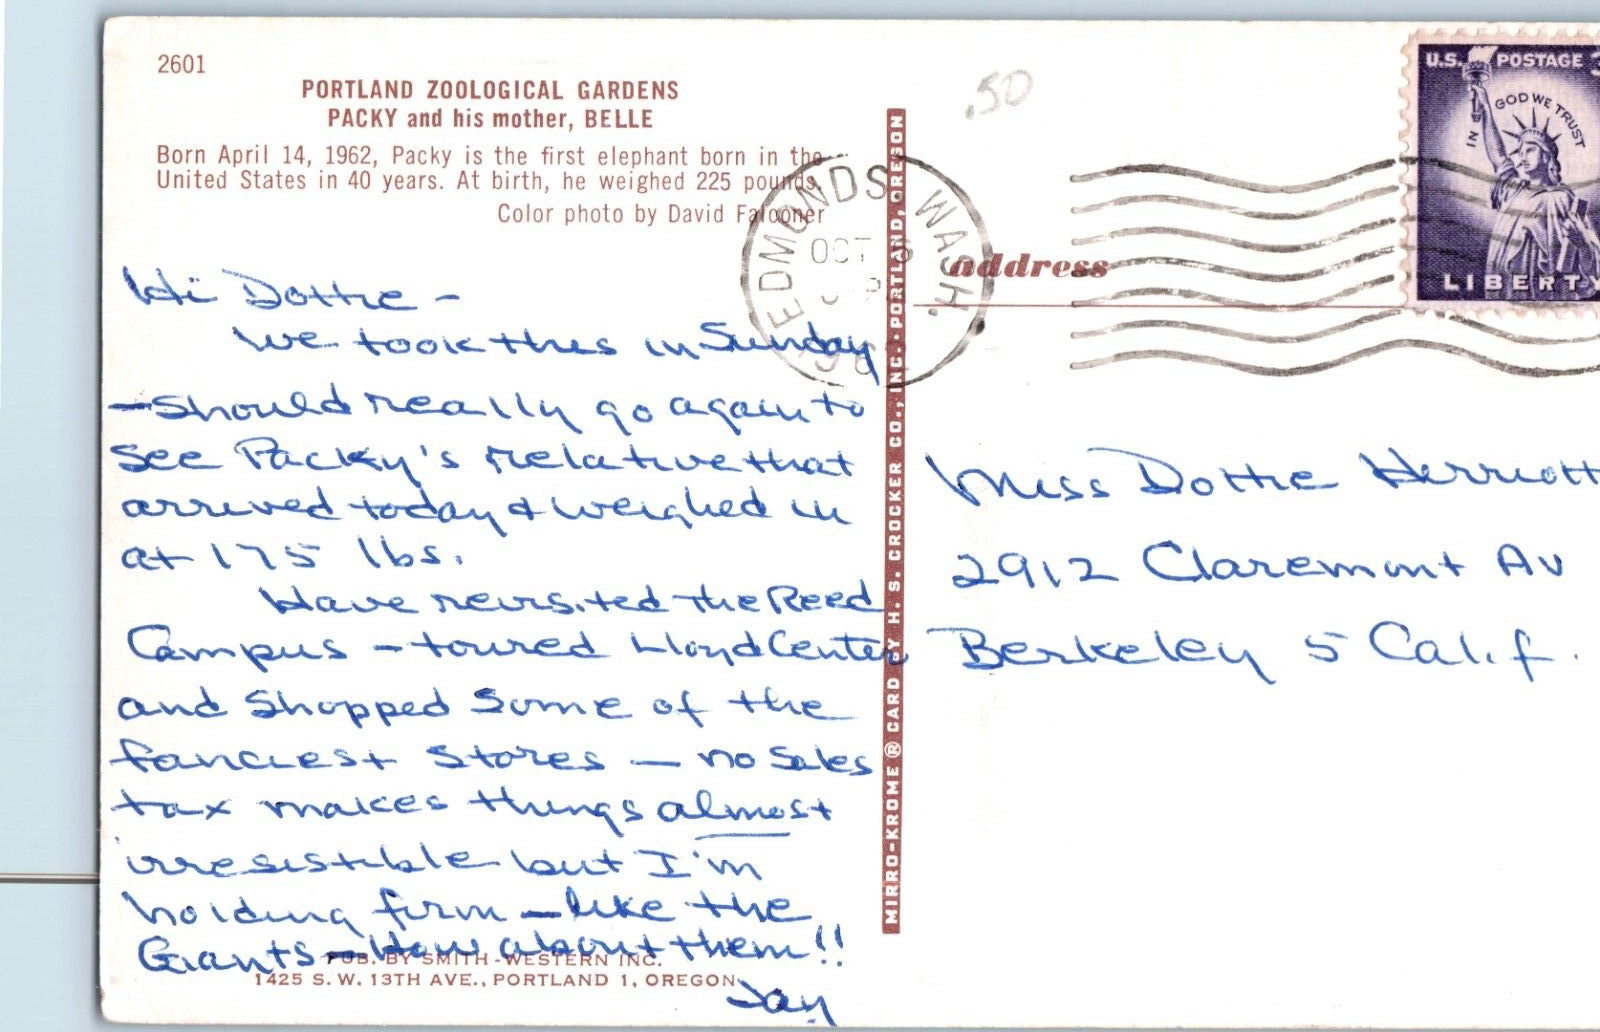 2601
PORTLAND ZOOLOGICAL GARDENS
PACKY and his mother, BELLE
Born April 14, 1962, Packy is the first elephant born in the
United States in 40 years. At birth, he weighed 225 pounds.
Color photo by David Falconer
Hi Dottie -
We took this in Sunday
- Should really go again to
see Packy's relative that
arrived today & weighed in
at 175 lbs.
Have revisited the Reed
Campus - toured Lloyd Center
and shopped some of the
fanciest stores - no sales
tax makes things almost
irresistible but I'm
holding firm - like the
Giants - How about them!!
Jay
PUB. BY SMITH-WESTERN INC.
1425 S. W. 13TH AVE., PORTLAND 1, OREGON
MIRRO-KROME ® CARD BY H. S. CROCKER CO., INC. PORTLAND, OREGON
.50
EDMONDS, WASH.
OCT
address
U.S. POSTAGE 3
IN GOD WE TRUST
LIBERTY
Miss Dottie Herriott
2912 Claremont Av
Berkeley 5 Calif.